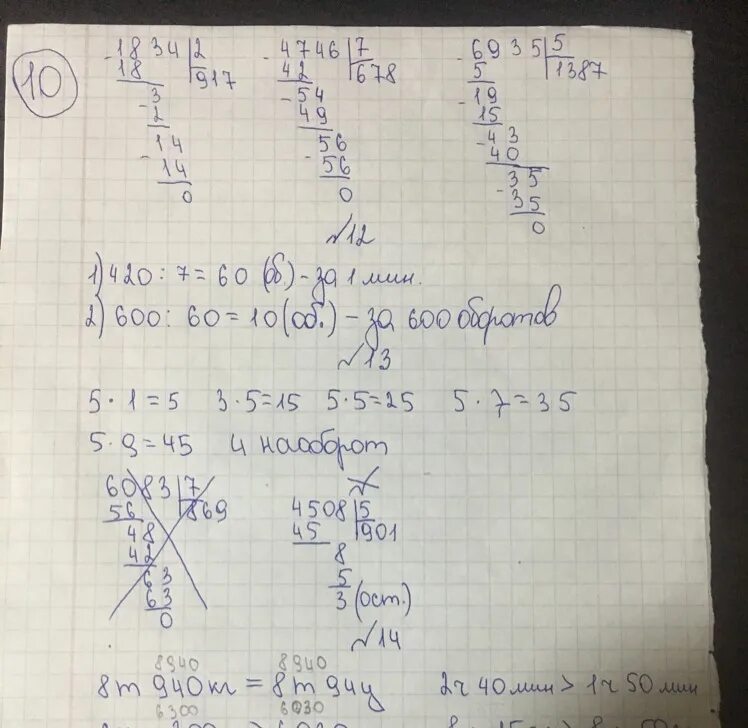 10
1834 | 2
18 | 917
3
2
14
14
0
4746 | 7
42 | 678
54
49
56
56
0
6935 | 5
5 | 1387
19
15
43
40
35
35
0
№12
1) 420 : 7 = 60 (об.) - за 1 мин.
2) 600 : 60 = 10 (об.) - за 600 оборотов
№13
5 · 1 = 5 3 · 5 = 15 5 · 5 = 25 5 · 7 = 35
5 · 9 = 45 И наоборот
6083 | 7
56 | 869
48
42
63
63
0
4508 | 5
45 | 901
8
5
3 (ост.)
№14
8940 8940
8т 940кг = 8т 94ц 2ч 40мин > 1ч 50мин
6300 6030